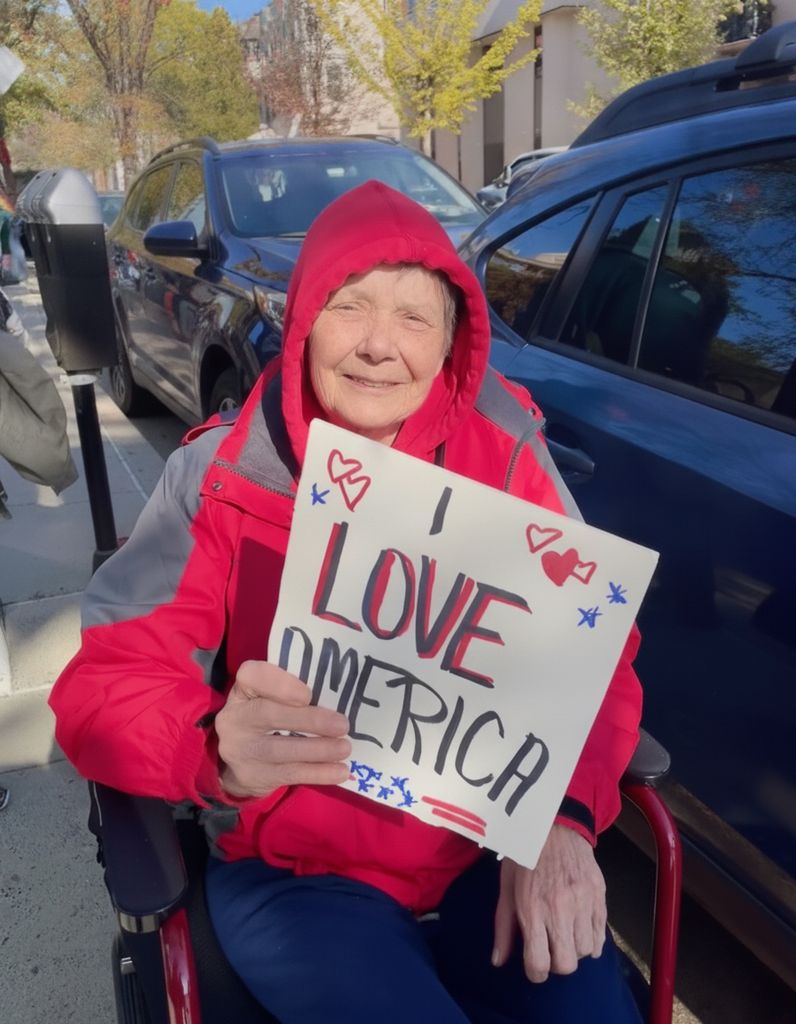 I
LOVE
AMERICA